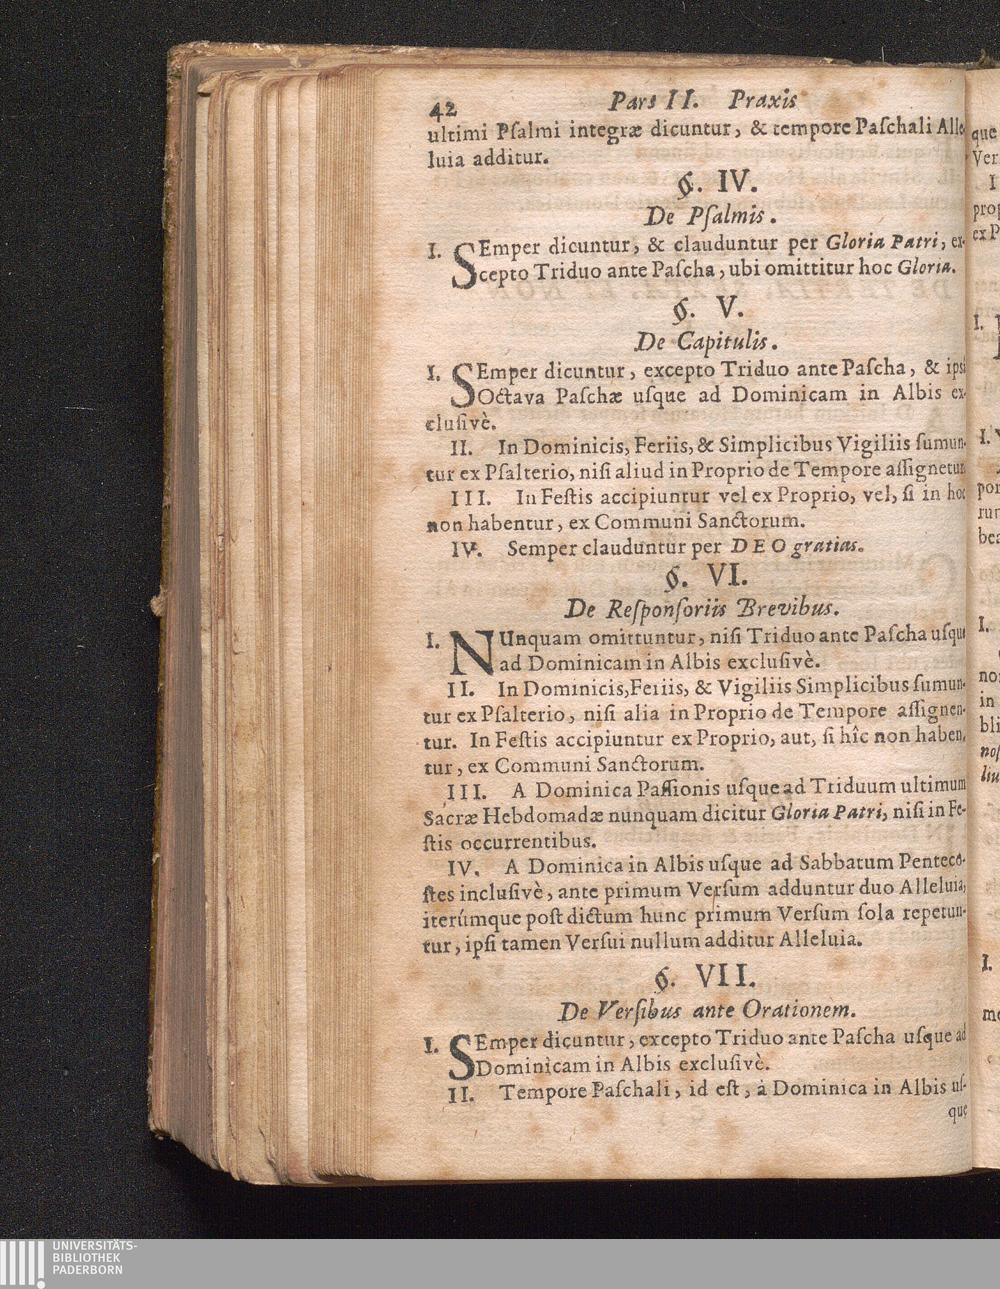 42 Pars II. Praxis
ultimi Pſalmi integræ dicuntur, & tempore Paſchali Alle
luia additur.
§. IV.
De Pſalmis.
I. SEmper dicuntur, & clauduntur per Gloria Patri, ex-
cepto Triduo ante Paſcha, ubi omittitur hoc Gloria.
§. V.
De Capitulis.
I. SEmper dicuntur, excepto Triduo ante Paſcha, & ipſi
Octava Paſchæ uſque ad Dominicam in Albis ex-
cluſivè.
II. In Dominicis, Feriis, & Simplicibus Vigiliis ſumun-
tur ex Pſalterio, niſi aliud in Proprio de Tempore aſſignetur
III. In Feſtis accipiuntur vel ex Proprio, vel, ſi in hoc
non habentur, ex Communi Sanctorum.
IV. Semper clauduntur per DEO gratias.
§. VI.
De Reſponſoriis Brevibus.
I. NUnquam omittuntur, niſi Triduo ante Paſcha uſque
ad Dominicam in Albis excluſivè.
II. In Dominicis, Feriis, & Vigiliis Simplicibus ſumun-
tur ex Pſalterio, niſi alia in Proprio de Tempore aſſignen-
tur. In Feſtis accipiuntur ex Proprio, aut, ſi hîc non haben,
tur, ex Communi Sanctorum.
III. A Dominica Paſſionis uſque ad Triduum ultimum
Sacræ Hebdomadæ nunquam dicitur Gloria Patri, niſi in Fe-
ſtis occurrentibus.
IV. A Dominica in Albis uſque ad Sabbatum Penteco-
ſtes incluſivè, ante primum Verſum adduntur duo Alleluia,
iterúmque poſt dictum hunc primum Verſum ſola repetun-
tur, ipſi tamen Verſui nullum additur Alleluia.
§. VII.
De Verſibus ante Orationem.
I. SEmper dicuntur, excepto Triduo ante Paſcha uſque ad
Dominicam in Albis excluſivè.
II. Tempore Paſchali, id eſt, à Dominica in Albis uſ-
que
UNIVERSITÄTS-
BIBLIOTHEK
PADERBORN